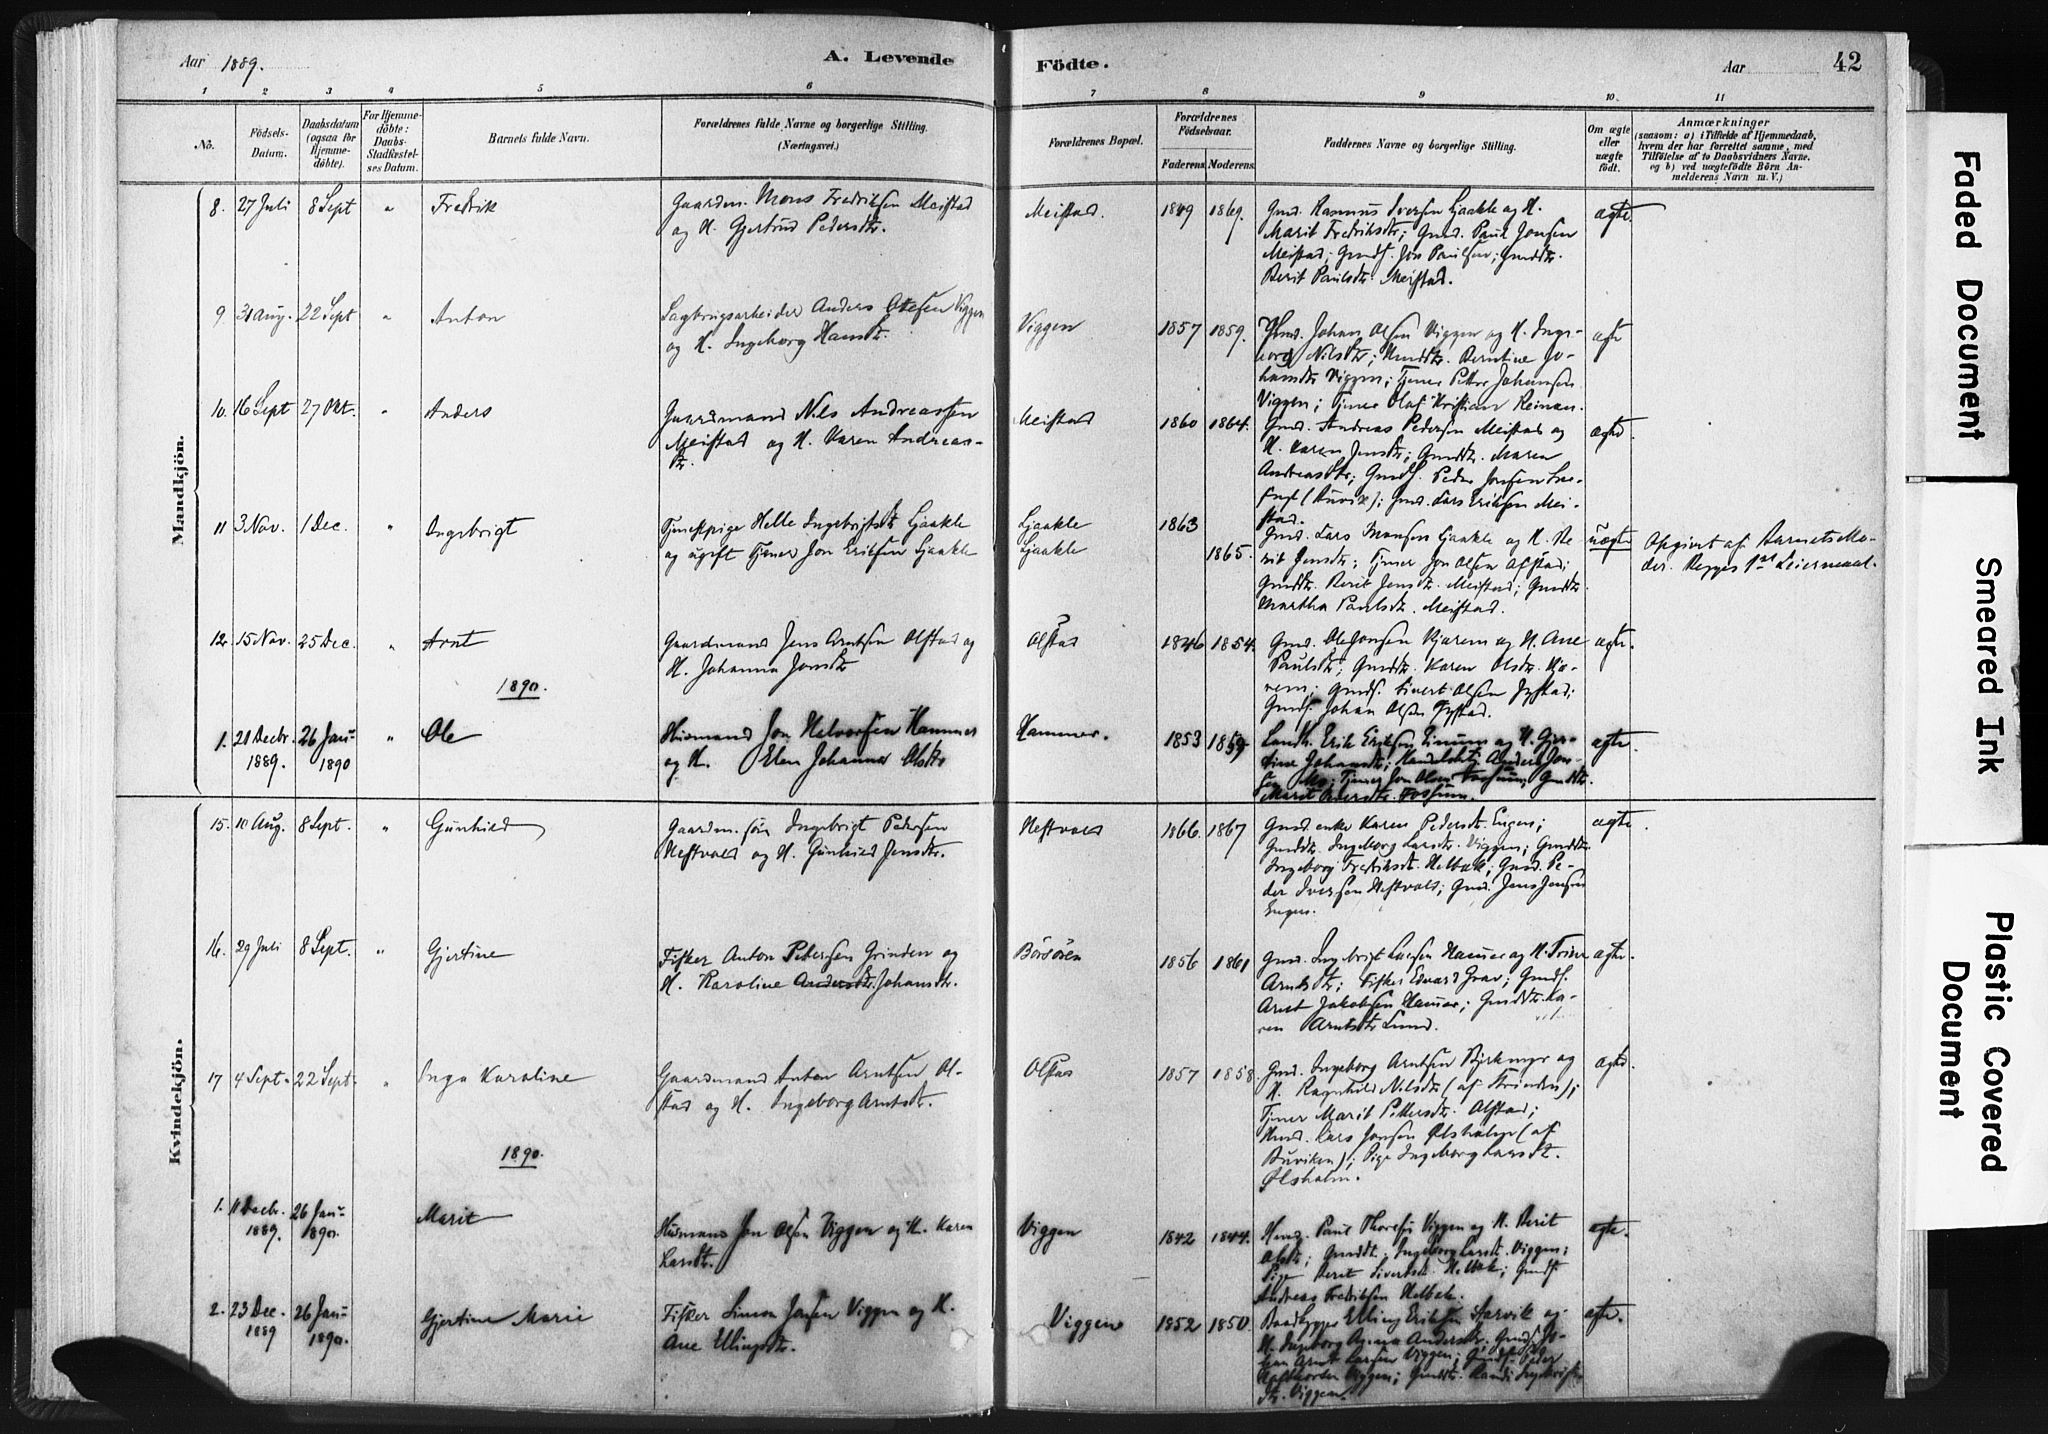 Aar 1889.
A. Levende
Födte.
Aar
42
1 2 3 4 5 6 7 8 9 10. 11
No.
Födsels-Datum.
Daabsdatum (ogsaa for Hjemme-döbte).
For Hjemme-döbte: Daabs-Stadfæstel-ses Datum.
Barnets fulde Navn.
Forældrenes fulde Navne og borgerlige Stilling.
(Næringsvei.)
Forældrenes Bopæl.
Forældrenes Födselsaar.
Faderens. Moderens.
Faddernes Navne og borgerlige Stilling.
Om ægte eller uægte födt.
Anmærkninger
(saasom: a) i Tilfælde af Hjemmedaab,
hvem der har forrettet samme, med
Tilföielse af to Daabsvidners Navne,
og b) ved uægtefödte Börn An-
melderens Navn m. V.)
Mandkjön.
8. 27 Juli 8 Sept " Fredrik
Gaardm. Mons Fredriksen Meistad
og H. Gjertrud Pedersdtr.
Meistad. 1849 1869.
Gmd. Rasmus Iversen Gaakle og H.
Marit Fredriksdtr; Gmd. Paul Jonsen
Meistad; Gmds. Jon Paulsen; Gmddtr.
Berit Paulsdtr. Meistad.
ægte
9 31 Aug. 22 Sept " Anton
Sagbrugsarbeider Anders Olesen Viggen
og H. Ingeborg Hansdtr.
Viggen 1857 1859.
Hmd. Johan Olsen Viggen og H. Inge-
borg Nilsdtr; Hmddtr. Berntine Jo-
hansdtr Viggen; Tjener Petter Johansen
Viggen; Tjener Olaf Kristian Reinan.
ægte
10. 16 Sept 27 Okt. " Anders
Gaardmand Nils Andreassen
Meistad og H. Karen Andreas-
dtr.
Meistad 1860 1864.
Gmd. Andreas Pedersen Meistad og
H. Karen Jensdtr; Gmddtr. Maren
Andreasdtr; Gmds. Peder Jonsen
(Buvik); Gmd. Lars Eriksen Mei-
stad.
ægte.
11 3 Nov. 1 Dec. " Ingebrigt
Tjenestpige Helle Ingebrigtsdtr Gaakle
og ugift Tjener Jon Eriksen Gaakle
Gaakle
Gaakle
1863
1865.
Gmd. Lars Monsen Gaakle og H. Be-
rit Jensdtr; Tjener Jon Olsen Olstad;
Gmddtr. Berit Jensdtr. Meistad; Gmddtr.
Martha Paulsdtr. Meistad.
uægte
Opgivet af Barnets Mo-
der. Begges 1ste Leiermaal.
12. 15 Nov. 25 Dec. " Arnt
Gaardmand Jens Arntsen Olstad og
H. Johanna Jonsdtr
Olstad 1846 1854.
Gmd. Ole Jonsen Kjærem og H. Ane
Paulsdtr; Gmddtr. Karen Olsdtr. Kjæ-
rem; Gmds. Sivert Olsen
Gmds. Johan Olsen
ægte.
1890.
1. 21 Decbr. 1889. 26 Jan. 1890 " Ole
Husmand Jon Halvorsen Hammer
og H. Elen Johanna Olsdtr
Hammer. 1853 1859
Landh. Erik Eriksen og H. Gjer-
tine Johansdtr; Handelsbtj Anders Jon-
sen Mo; Tjener Jon Olsen Fossum; Gmddtr.
Marit Fossum.
ægte.
Kvindekjön.
15. 10 Aug. 8 Sept. " Gunhild
Gaardm. søn Ingebrigt Pedersen
Heftvold og H. Gunhild Jensdtr.
Heftvold 1866. 1867
Gmd. enke Karen Pedersdtr. Engen;
Gmddtr. Ingeborg Larsdtr. Viggen; Gmddtr.
Ingeborg Fredriksdtr. Helbæk; Gmd. Pe-
der Iversen Heftvold; Gmd. Jens Jensen
Engen.
ægte.
16. 29 Juli 8 Sept. " Gjertine
Fisker Anton Petersen Grinden og
H. Karoline Andersdtr. Johansdtr.
Börsören 1856 1861
Gmd. Ingebrigt Larsen Hammer og H. Trine
Arntsdtr; Fisker Edvard Grav; Gmds.
Arnt Jakobsen Hammer; Gmddtr. Ka-
ren Arntsdtr Lund.
ægte.
17 4 Sept. 22 Sept. " Inga Karoline
Gaardmand Anton Arntsen Ol-
stad og H. Ingeborg Arntsdtr.
Olstad 1857 1858.
Gmd. Ingeborg Arntsen Bjerkmyr og
H. Ragnhild Nilsdtr (af Strinden);
Tjener Marit Pettersdtr. Olstad;
Hmd. Lars Jonsen Ølsholm (af
Buviken); Pige Ingeborg Larsdtr.
Ølsholm.
ægte.
1890.
1. 11 Decbr. 1889. 26 Jan. 1890. Marit
Husmand Jon Olsen Viggen og H. Karen
Larsdtr.
Viggen 1842 1844.
Hmd. Paul Thoresen Viggen og H. Berit
Olsdtr; Gmddtr. Ingeborg Larsdtr. Viggen;
Pige Beret Sivertsdtr. Helbæk; Gmds.
Andreas Fredriksen Helbæk.
ægte.
2. 23 Dec. 1889 26 Jan. 1890. Gjertine Marie
Fisker Simon Jansen Viggen og H.
Ane Ellingsdtr.
Viggen 1852 1850.
Baadbygger Elling Eriksen Storvik og
H. Ingeborg Anna Andersdtr. Gmds. Jo-
han Arnt Larsen Viggen; Gmds. Peder
Viggen; Gmddtr. Randi Ingebrigts-
dtr. Viggen.
ægte.
Faded Document
Smeared Ink
Plastic Covered
Document